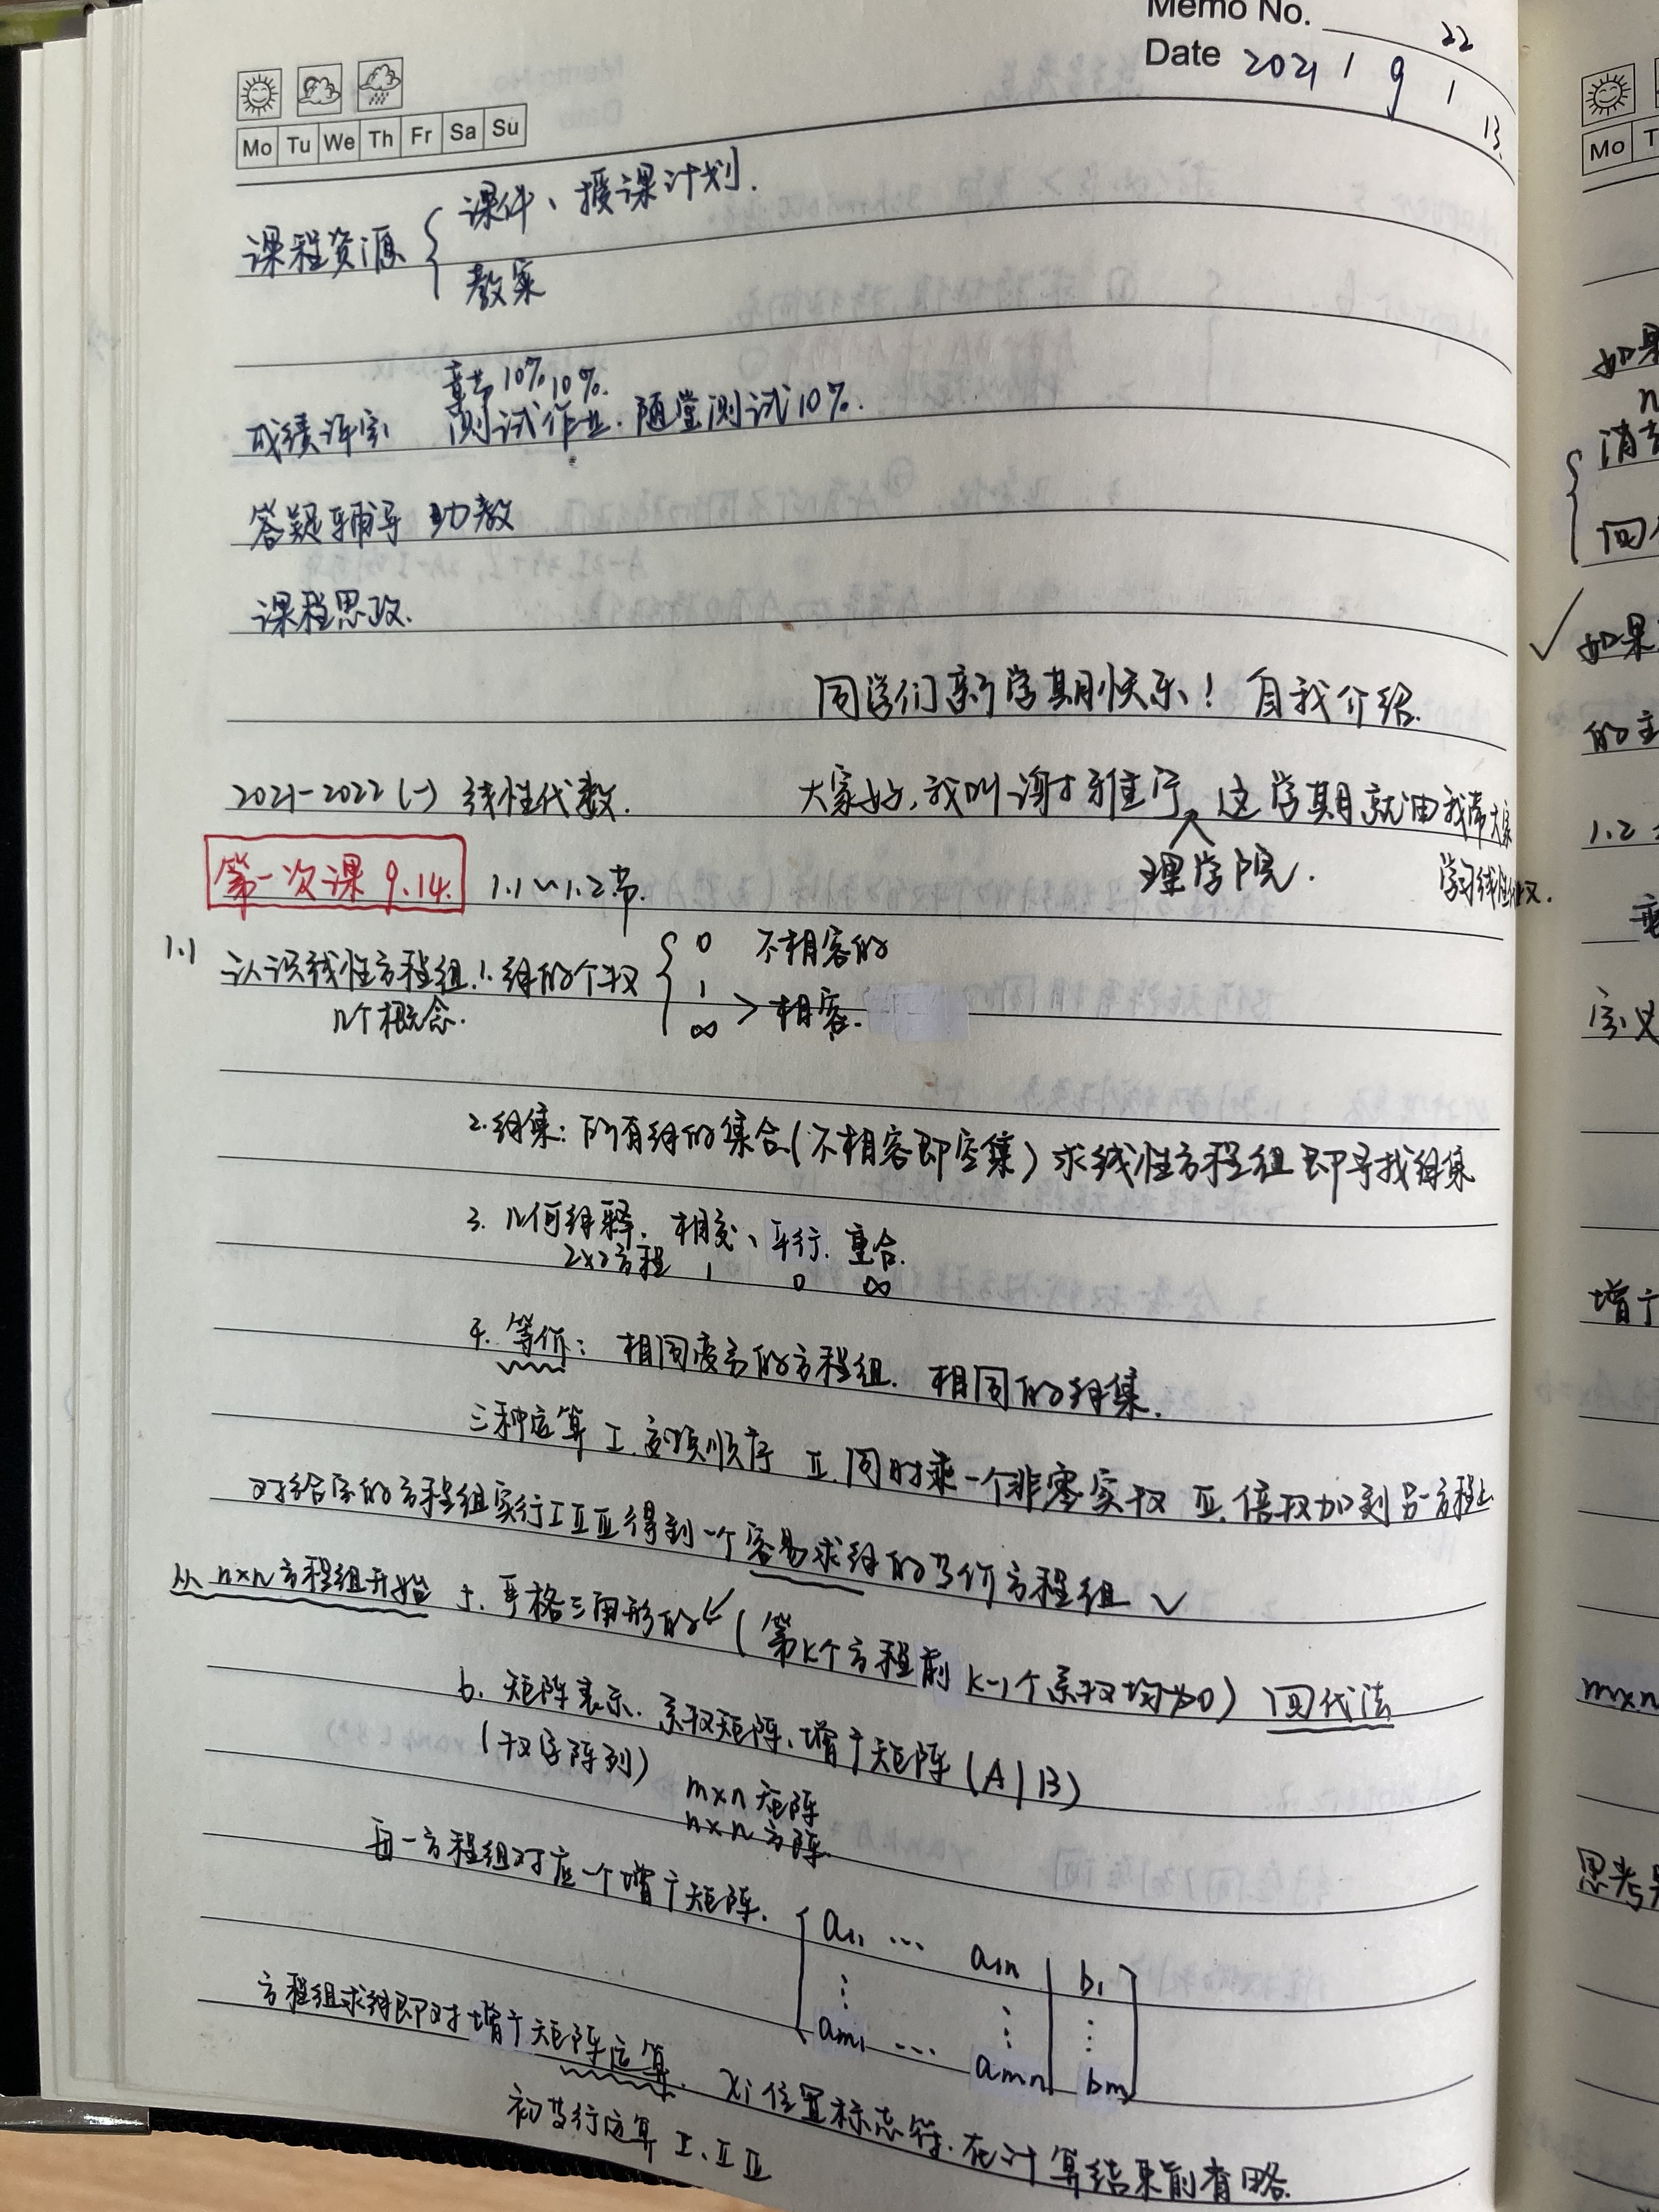 Memo No.
22
Date 2021 / 9 / 13.
Mo Tu We Th Fr Sa Su
课程资源 { 课件、授课计划.
教案
章节 10% 10%.
成绩评定 测试作业. 随堂测试10%.
答疑辅导 助教
课程思政.
同学们新学期快乐! 自我介绍.
2021-2022(一) 线性代数. 大家好,我叫谢雅宁 这学期就由我带大家
理学院. 学习线性代数.
第一次课 9.14. 1.1~1.2节.
1.1 认识线性方程组. 1. 解的个数 { 0 不相容的
几个概念. 1
∞ > 相容.
2. 解集: 所有解的集合(不相容即空集) 求线性方程组即寻找解集
3. 几何解释. 相交、平行. 重合.
2×2方程 1 0 ∞
4. 等价: 相同变量的方程组. 相同的解集.
三种运算 I. 交换顺序 II. 同时乘一个非零实数 III. 倍数加到另一方程上
对给定的方程组实行I II III得到一个容易求解的等价方程组 ✓
从 n×n 方程组开始 5. 严格三角形的 (第k个方程前 k-1个系数均为0) 回代法
6. 矩阵表示. 系数矩阵. 增广矩阵 (A|B)
(数字阵列)
m×n 矩阵
n×n 方阵
每一方程组对应一个增广矩阵.
a11 … a1n b1
⋮ ⋮ ⋮
am1 … amn bm
方程组求解即对增广矩阵运算. xi 位置标志符. 在计算结果前省略.
初等行运算 I. II III
Mo
如果
消去
回代
如果
的主
1.2
定义
增广
m×n
思考